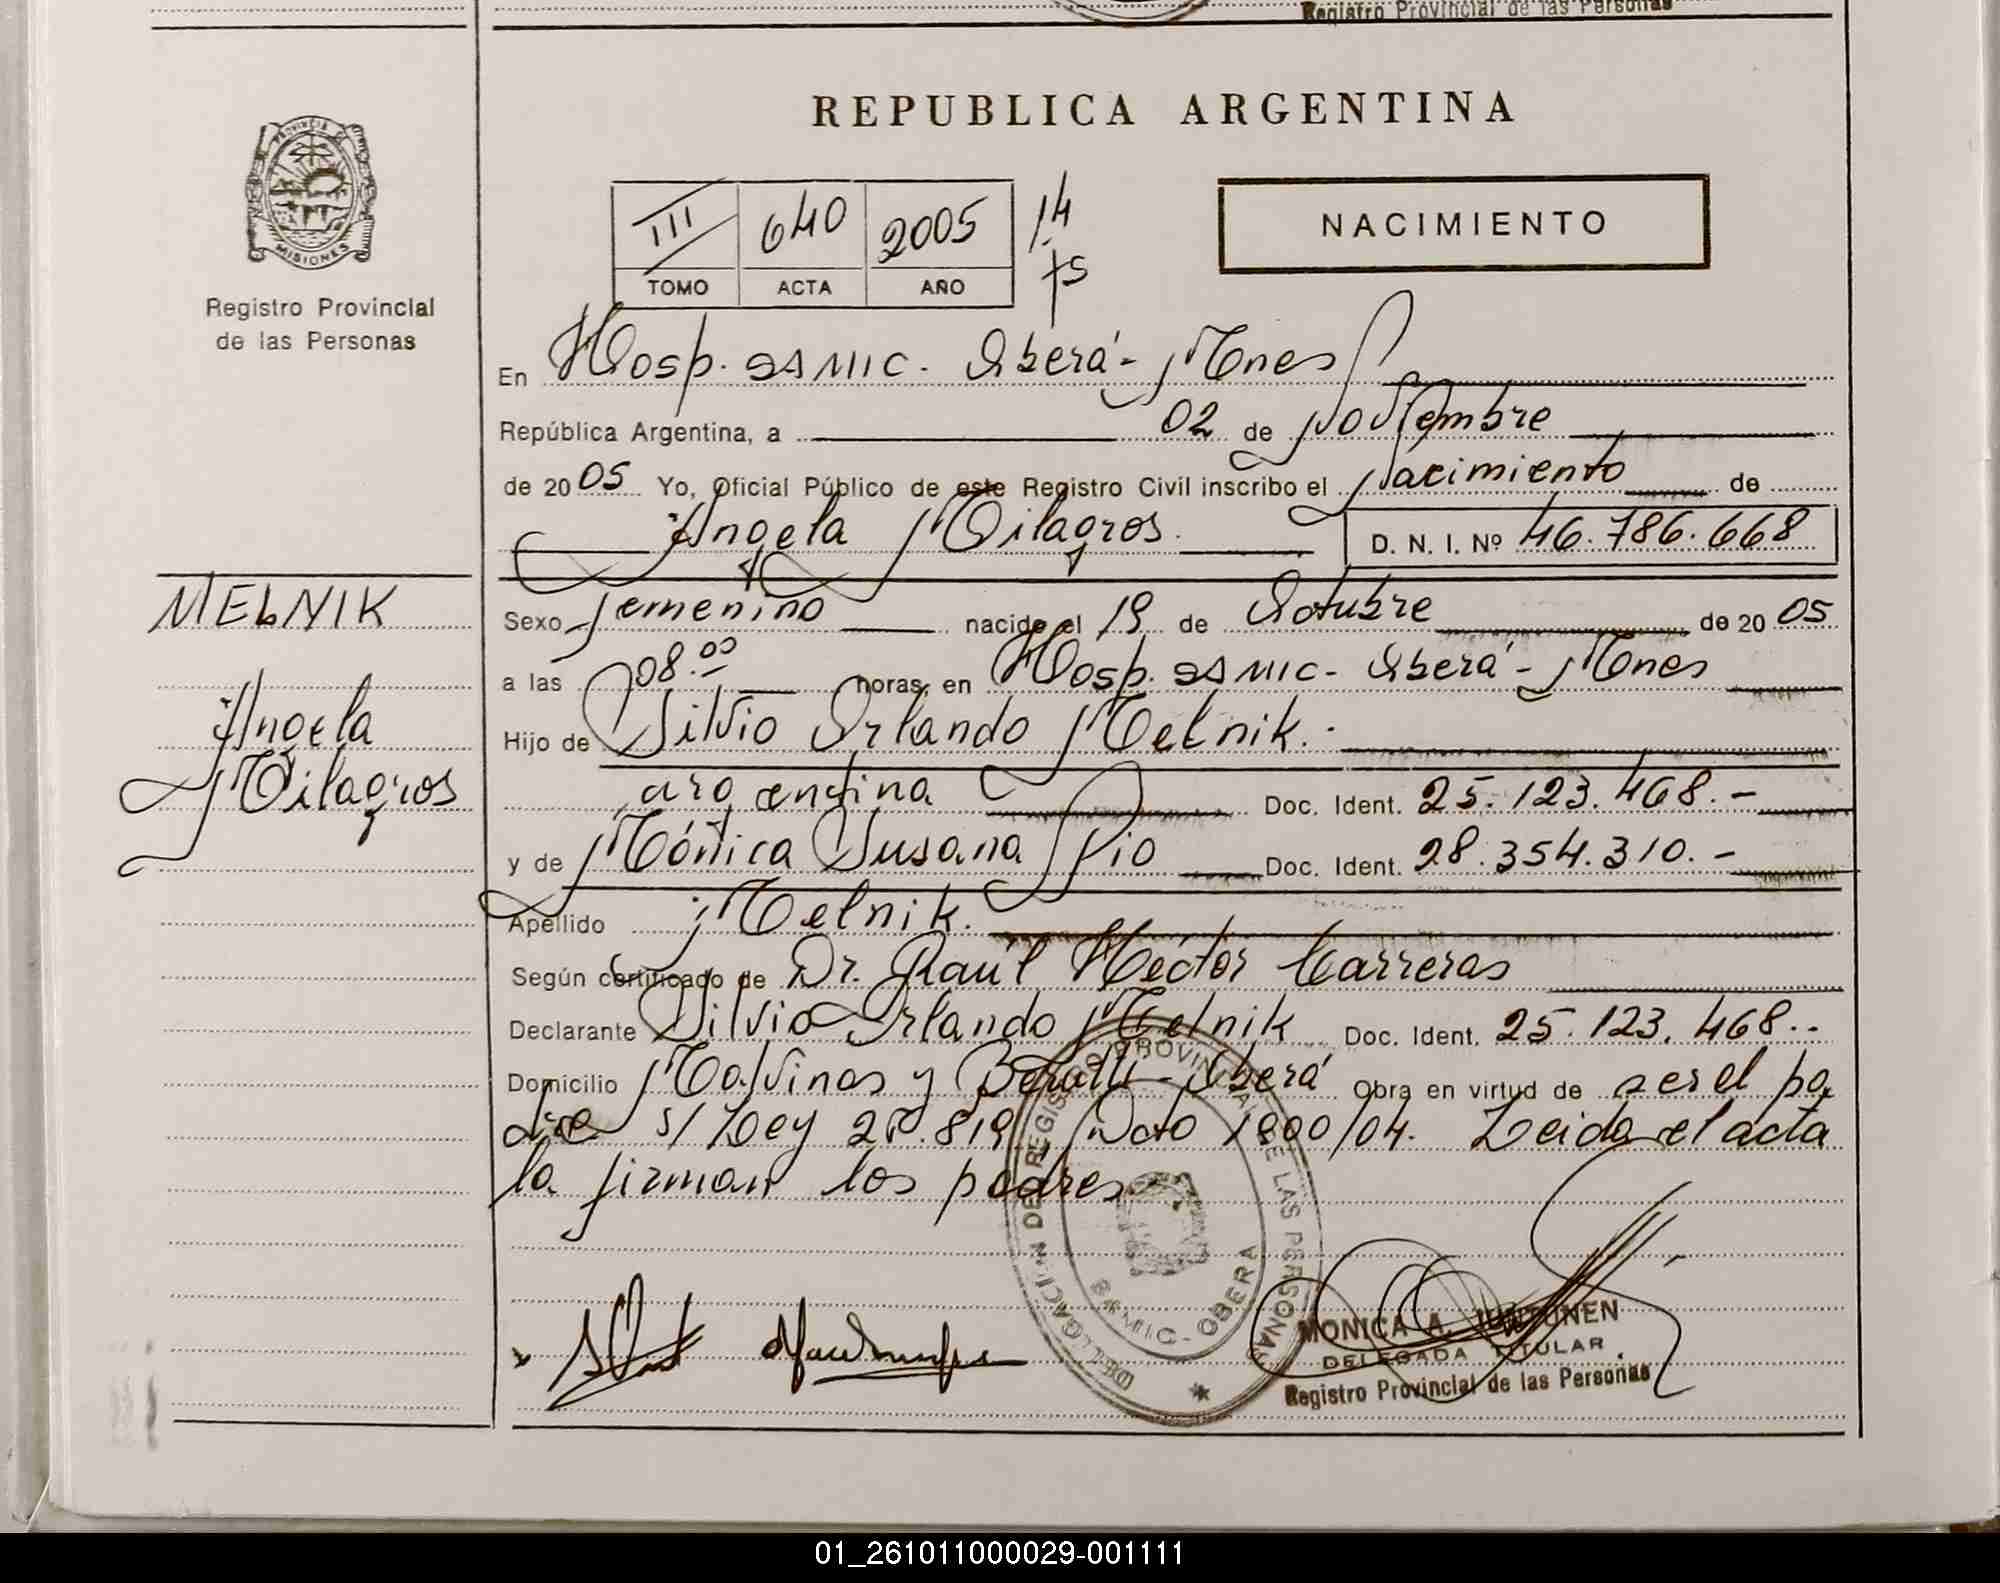 Registro Provincial de las Personas
REPUBLICA ARGENTINA
PROVINCIA DE
MISIONES
Registro Provincial
de las Personas
III 640 2005 14
TOMO ACTA AÑO 75
NACIMIENTO
En Hosp. SAMIC. Oberá - Mnes
República Argentina, a 02 de Noviembre
de 2005 Yo, Oficial Público de este Registro Civil inscribo el Nacimiento de
Angela Milagros. D. N. I. Nº 46.786.668
MELNIK
Angela
Milagros
Sexo femenino nacido el 19 de Octubre de 2005
a las 08.00 horas, en Hosp. SAMIC - Oberá - Mnes
Hijo de Silvio Orlando Melnik.-
argentina Doc. Ident. 25.123.468.-
y de Mónica Susana Pio Doc. Ident. 28.354.310.-
Apellido Melnik.
Según certificado de Dr. Raúl Héctor Carreras
Declarante Silvio Orlando Melnik Doc. Ident. 25.123.468..
Domicilio Malvinas y Oberá Obra en virtud de ser el pa
dre s/ Ley 25.819 Dcto 1900/04. Leida el acta
la firman los padres
DELEGACION DEL REGISTRO PROVINCIAL DE LAS PERSONAS
SAMIC - OBERA
MONICA A.
DELEGADA TITULAR
Registro Provincial de las Personas
01_261011000029-001111